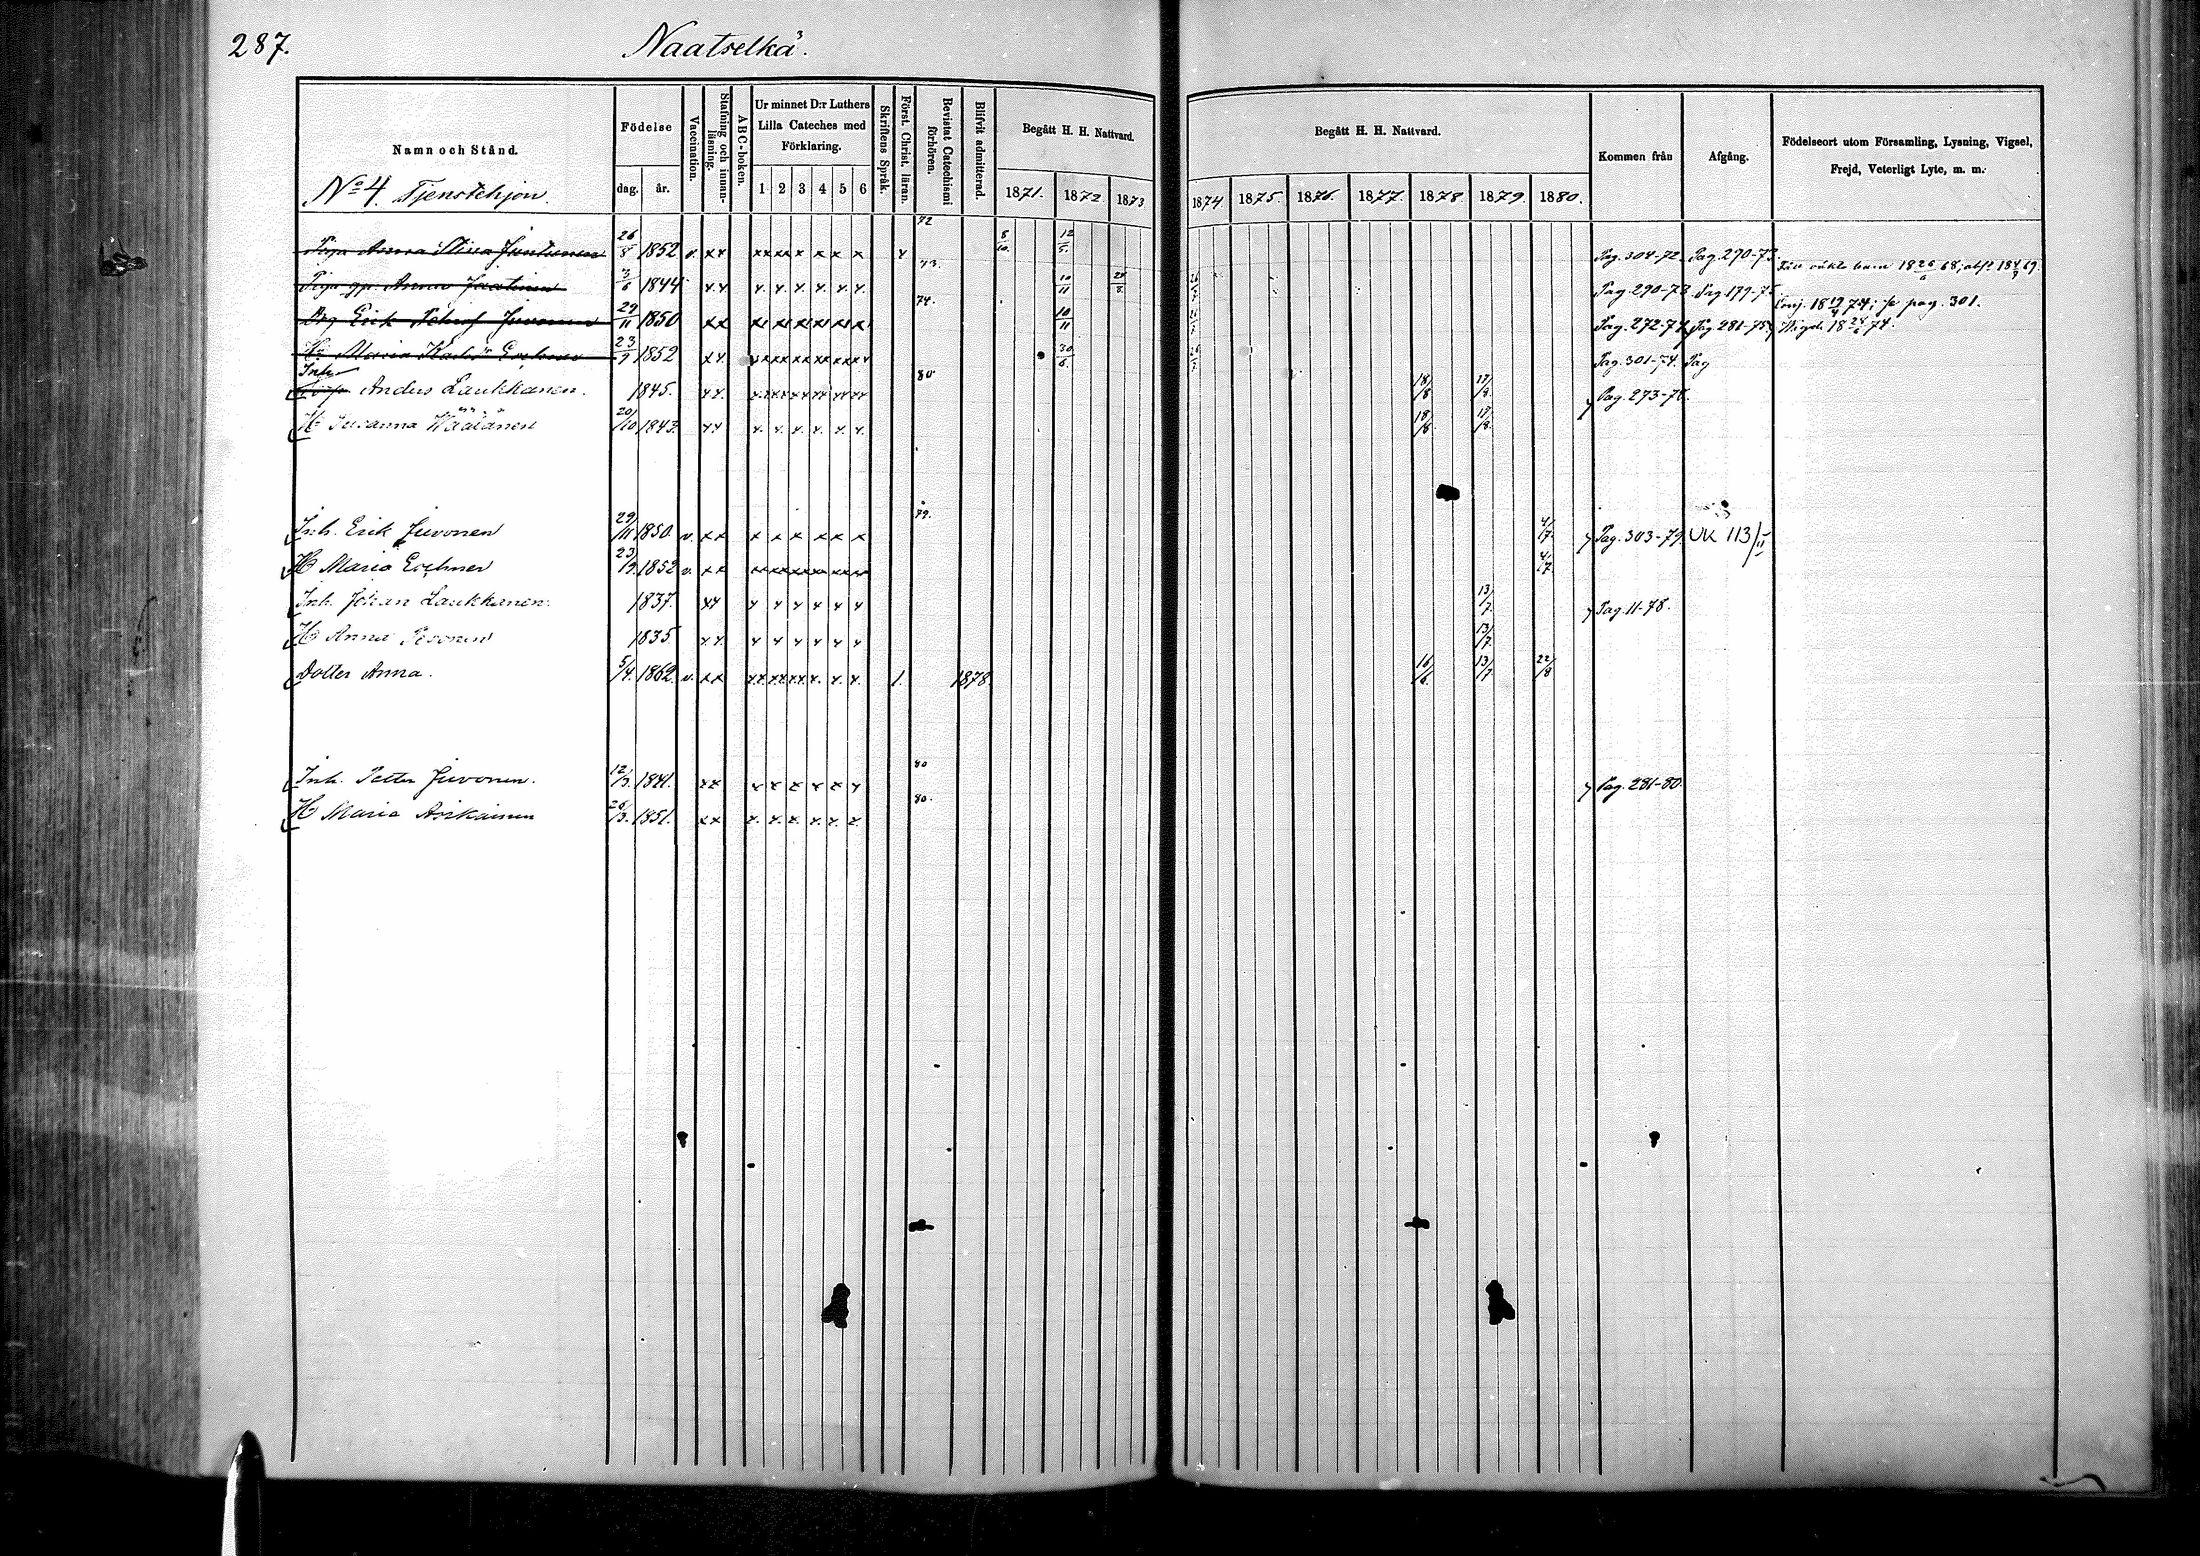 287.
Naatselkä.
Namn och Stånd.
No 4. Tjenstehjon.
Födelse
dag. år.
Vaccination.
Stafning och innanläsning.
ABC-boken.
Ur minnet D:r Luthers Lilla Cateches med Förklaring.
1 2 3 4 5 6
Skriftens Språk.
Först. Christ. läran.
Bevistat Catechismi förhören.
Blifvit admitterad.
Begått H. H. Nattvard.
1871. 1872. 1873
Begått H. H. Nattvard.
1874. 1875. 1876. 1877. 1878. 1879. 1880.
Kommen från
Afgång.
Födelseort utom Församling, Lysning, Vigsel, Frejd, Veterligt Lyte, m. m.
72
Piga Anna Stina Juntunen 26/8 1852 v. xx xxxx x x x x x 8/10. 12/5. Pag. 304-72. Pag. 290-73.
73.
Piga Anna 1844 x.x. x. x. x. x. x. x. 10/11 Pag. 290-73. Pag. 179-75.
74.
Erik Juvonen 29/11 1850 xx 10/11 Pag. 272-74 Pag. 281-75 Conj. 74; se pag. 301.
Vigde 74.
Hu Maria 23/9 1852 xx. 30/6. Pag. 301-74. Pag
80
Inh. Anders Laukkanen. 1845. xx. 18/8 17/8. Pag. 273-78.
Hu Susanna Väätänen 20/10 1843. xx x. x. x. x. x. x. 18/8 17/8.
79.
Inh. Erik Juvonen 29/11 1850. v. xx x x x x x x x 4/17. Pag. 303-79. UK 113/II
Hu Maria 23/9. 1852 v. xx 4/17.
Inh. Johan Laukkanen. 1837. xx x x x x x x 13/7. Pag. 11-78.
Hu Anna 1835 xx x x x x x x 13/7.
Dotter Anna. 5/4. 1862. v. xx xx. xx. xx. x. x. x. 1. 1878. 16/6. 13/7 22/8
80
Inh. Petter Juvonen. 12/3. 1841. xx x x x x x x Pag. 281-80.
80.
Hu Maria 26/3. 1851. xx x. x. x. x. x. x.